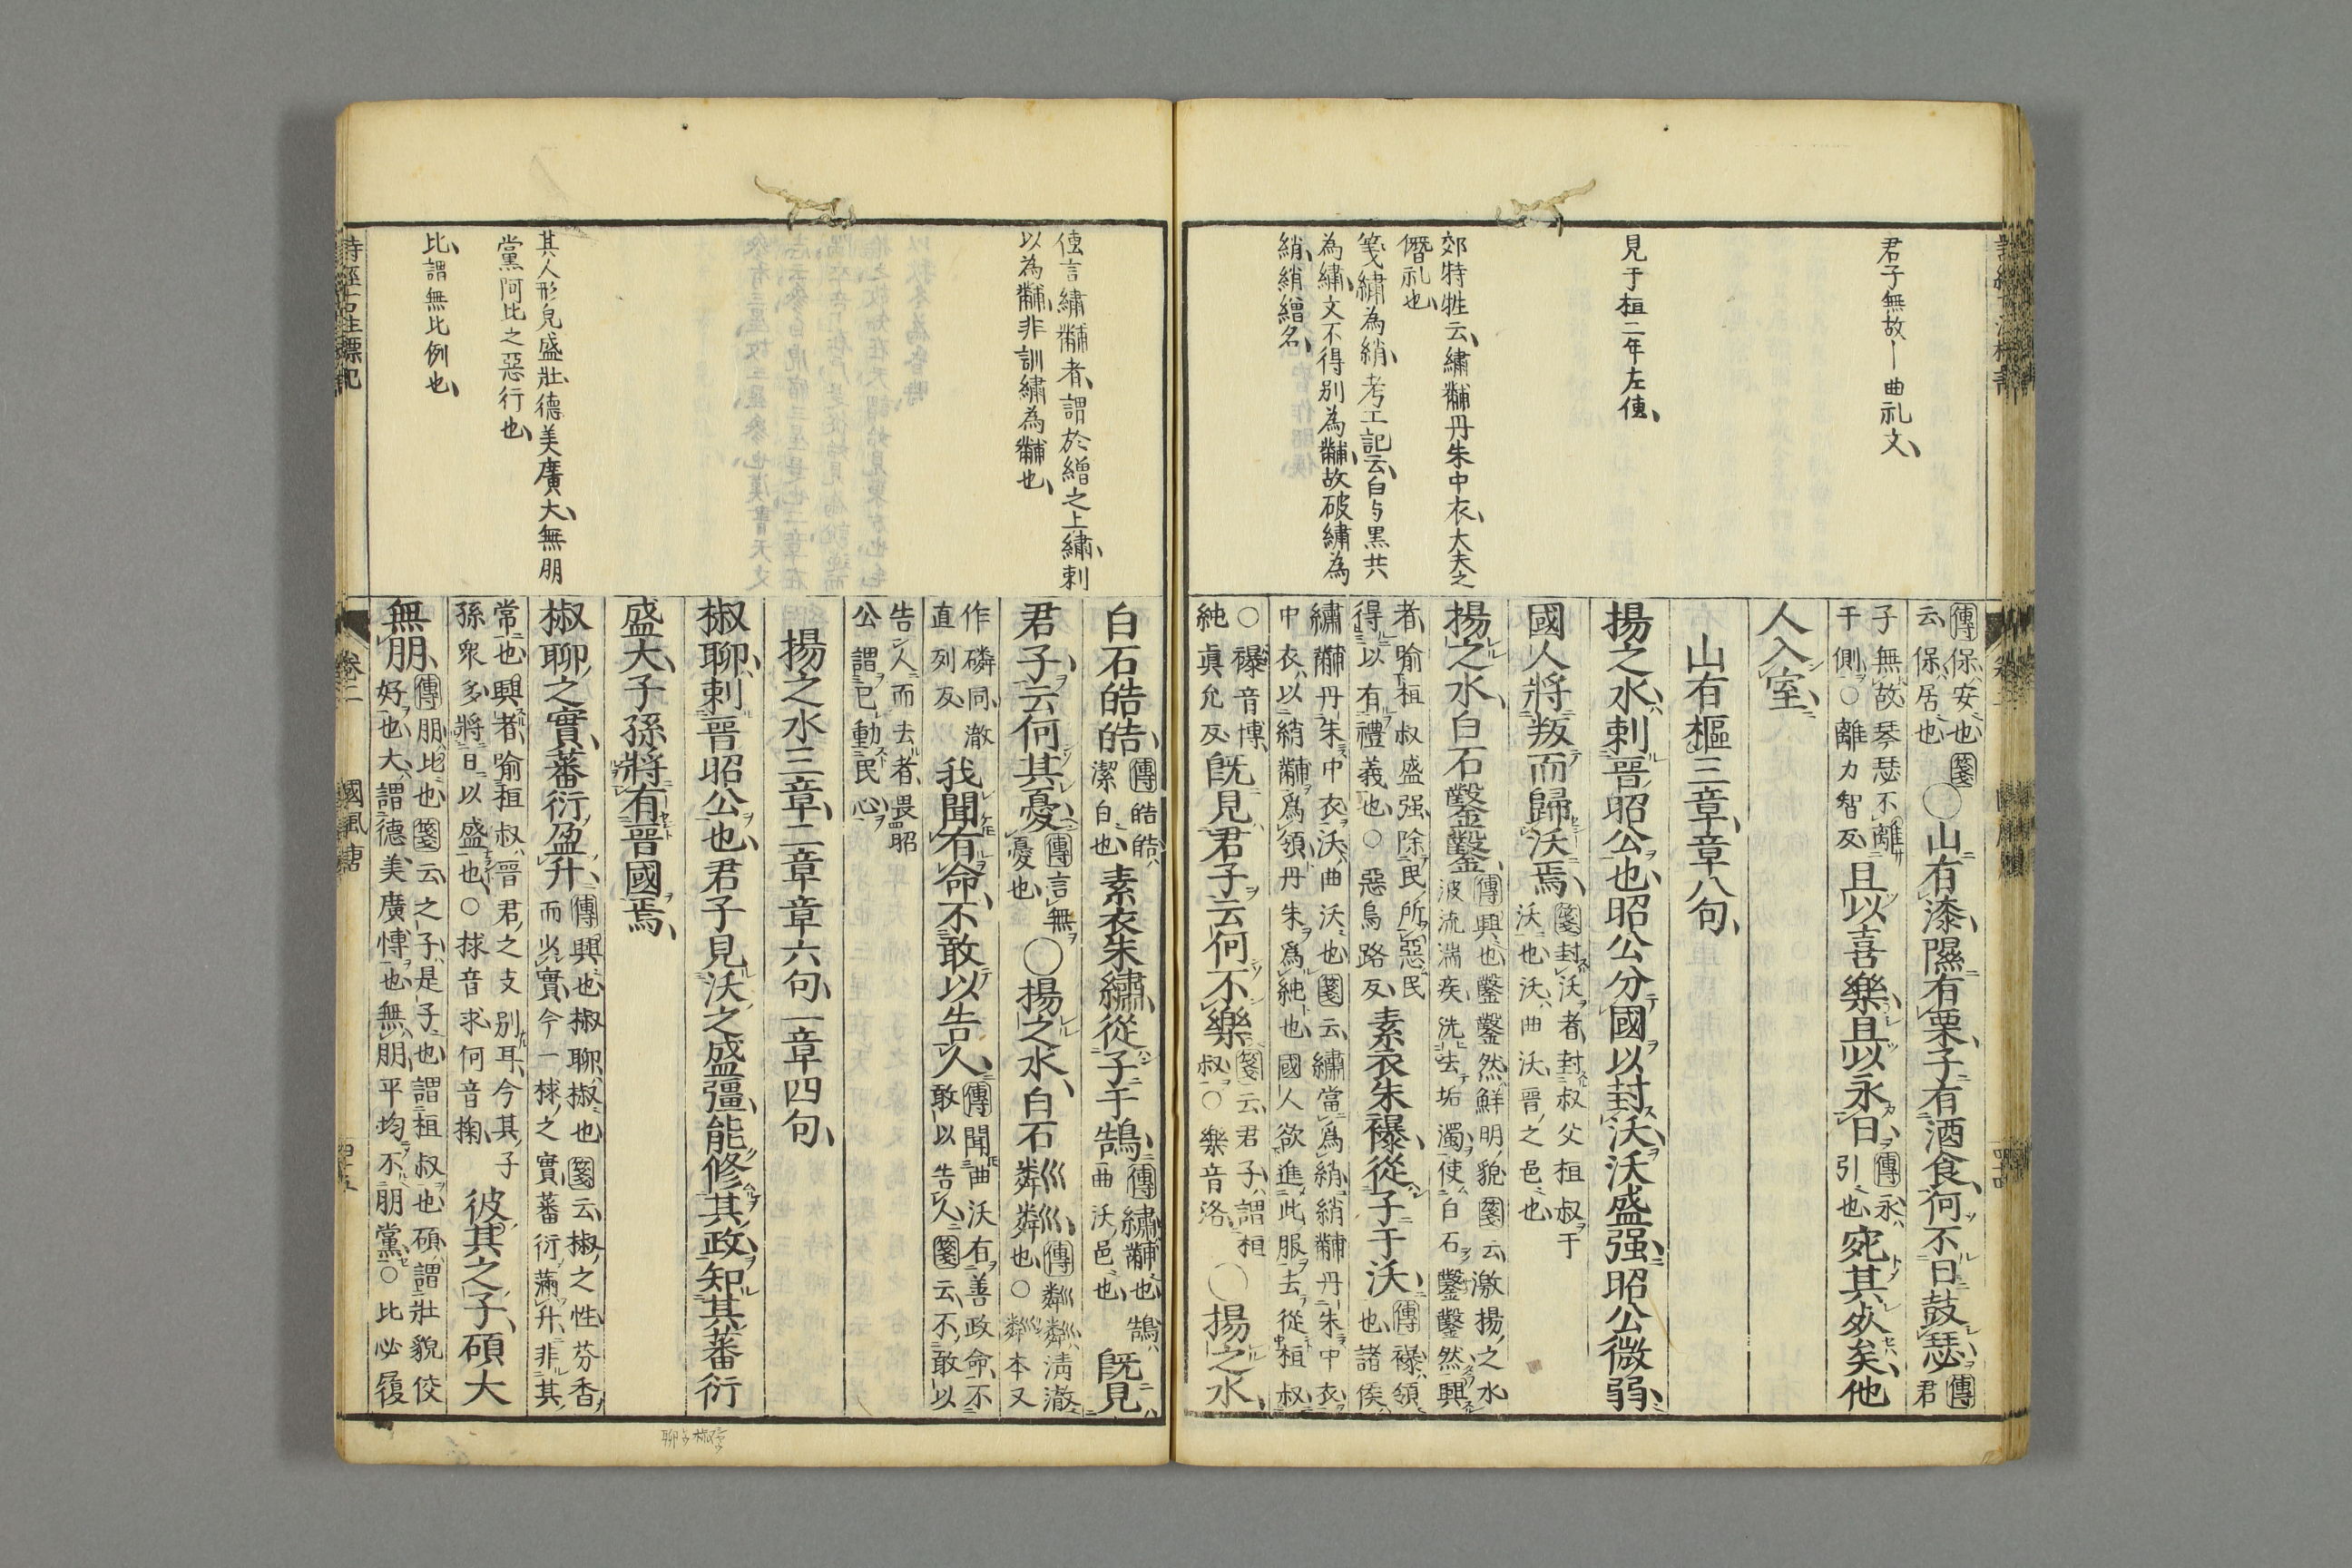 君子無故ー曲礼文、
見于桓二年左傳、
郊特牲云、繡黼丹朱中衣、大夫之
僭礼也、
箋繡為綃、考工記云、白与黒共
為繡、文不得別為黼、故破繡為
綃、綃繒名、
傳保、安也、箋
云、保、居也、
○山有漆、隰有栗、子有酒食、何不日鼓瑟、
傳君
子無故琴瑟不離
于側、○離力智反、
且以喜樂、且以永日、
傳永、
引也、
宛其死矣、他
人入室、
山有樞三章、章八句、
揚之水、刺晉昭公也、昭公分國以封沃、沃盛强、昭公微弱、
國人將叛而歸沃焉、
箋封沃者、封叔父桓叔于
沃也、沃、曲沃、晉之邑也、
揚之水、白石鑿鑿、
傳興也、鑿鑿然、鮮明貌、箋云、激揚之水
波流湍疾、洗去垢濁、使白石鑿鑿然、興
者、喻桓叔盛强、除民所惡、民
得以有禮義也、○惡烏路反、
素衣朱襮、從子于沃、
傳襮、領
也、諸侯
繡黼丹朱中衣、沃、曲沃也、箋云、繡當爲綃、綃黼丹朱中衣、
中衣、以綃黼爲領、丹朱爲純也、國人欲進此服、去從桓叔、
○襮音博、
純眞允反、
旣見君子、云何不樂、
箋云、君子、謂桓
叔、○樂音洛、
○揚之水、
傳言繡黼者、謂於繒之上繡、刺
以為黼、非訓繡為黼也、
其人形皃盛壯、德美廣大、無朋
黨阿比之惡行也、
比、謂無比例也、
白石皓皓、
傳皓皓、
潔白也、
素衣朱繡、從子于鵠、
傳繡黼也、鵠、
曲沃邑也、
旣見
君子、云何其憂、
傳言無
憂也、
○揚之水、白石粼粼、
傳粼粼、淸澈
也、○粼本又
作磷同、澈
直列反、
我聞有命、不敢以告人、
傳聞曲沃有善政命、不
敢以告人、箋云、不敢以
告人而去者、畏昭
公謂已動民心、
揚之水三章、二章章六句、一章四句、
椒聊、刺晉昭公也、君子見沃之盛彊、能修其政、知其蕃衍
盛大、子孫將有晉國焉、
椒聊之實、蕃衍盈升、
傳興也、椒聊、椒也、箋云、椒之性芬香、
而少實、今一捄之實、蕃衍滿升、非其
常也、興者、喻桓叔、晉君之支別耳、今其子
孫衆多、將日以盛也、○捄音求、何音掬、
彼其之子、碩大
無朋、
傳朋、比也、箋云、之子、是子也、謂桓叔也、碩、謂壯貌佼
好也、大、謂德美廣慱也、無朋、平均不朋黨、○比必履
詩經古注標記
卷二
國風唐
四十五